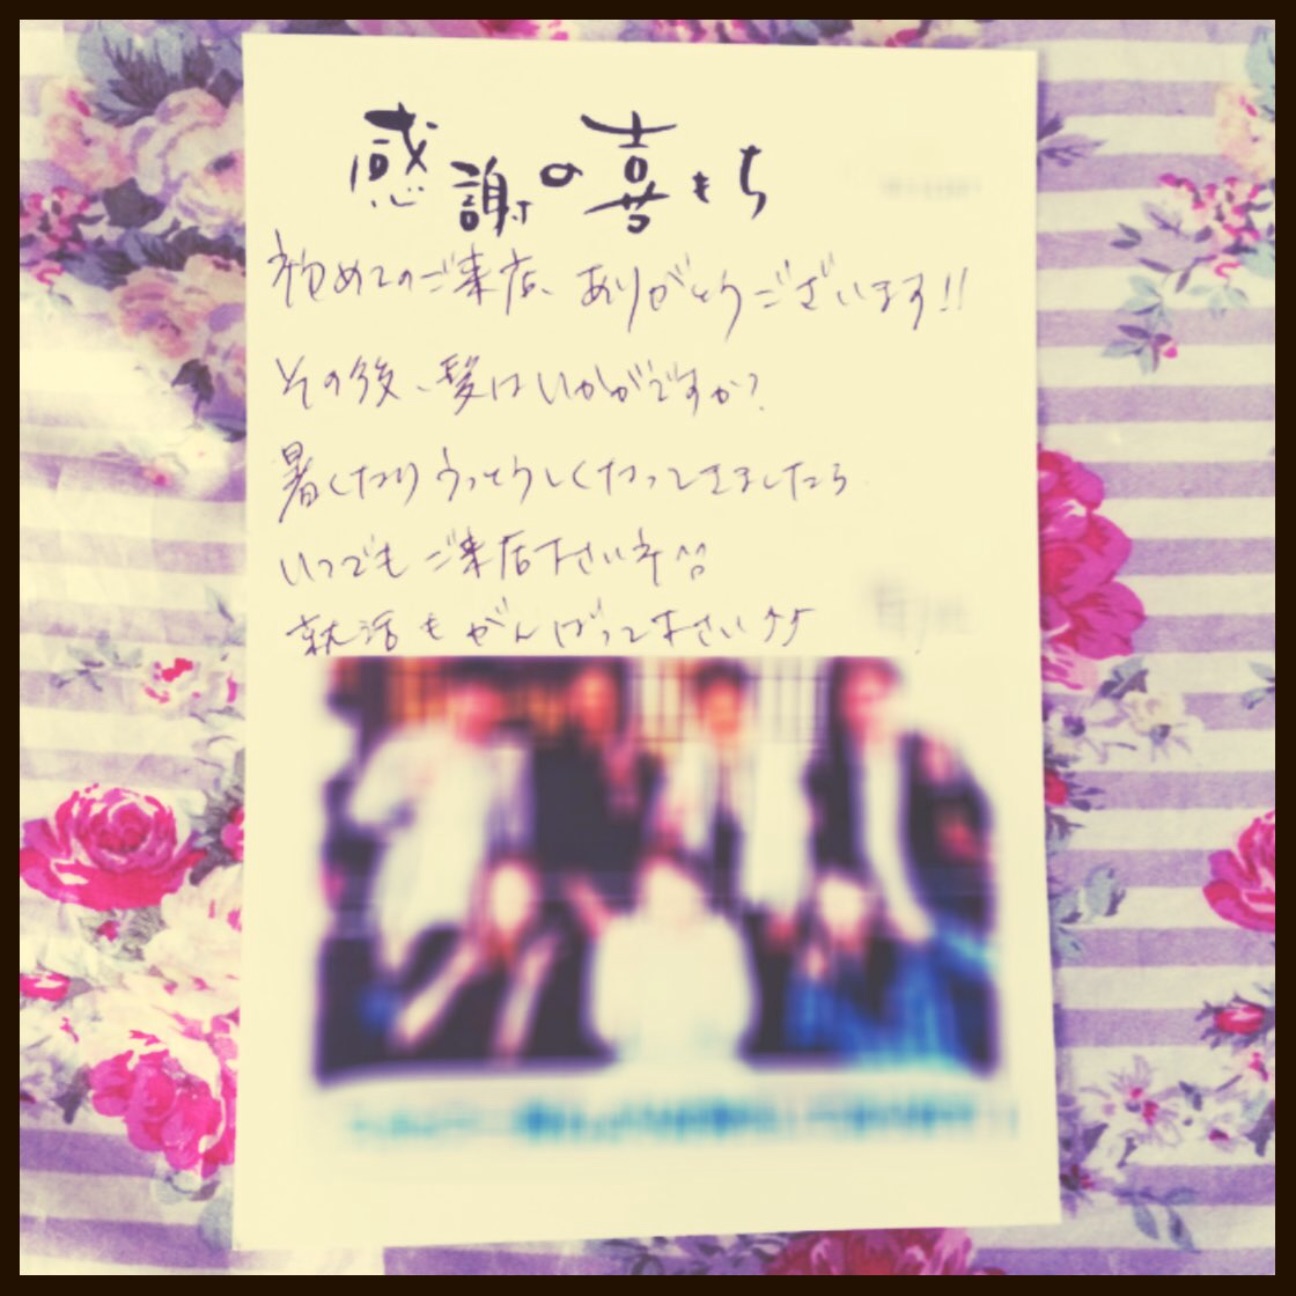 感謝の喜もち
初めてのご来店、ありがとうございます!!
その後、髪はいかがですか?
暑くなりうっとうしくなってきましたら
いつでもご来店下さいネ^^
就活もがんばって下さいッッ